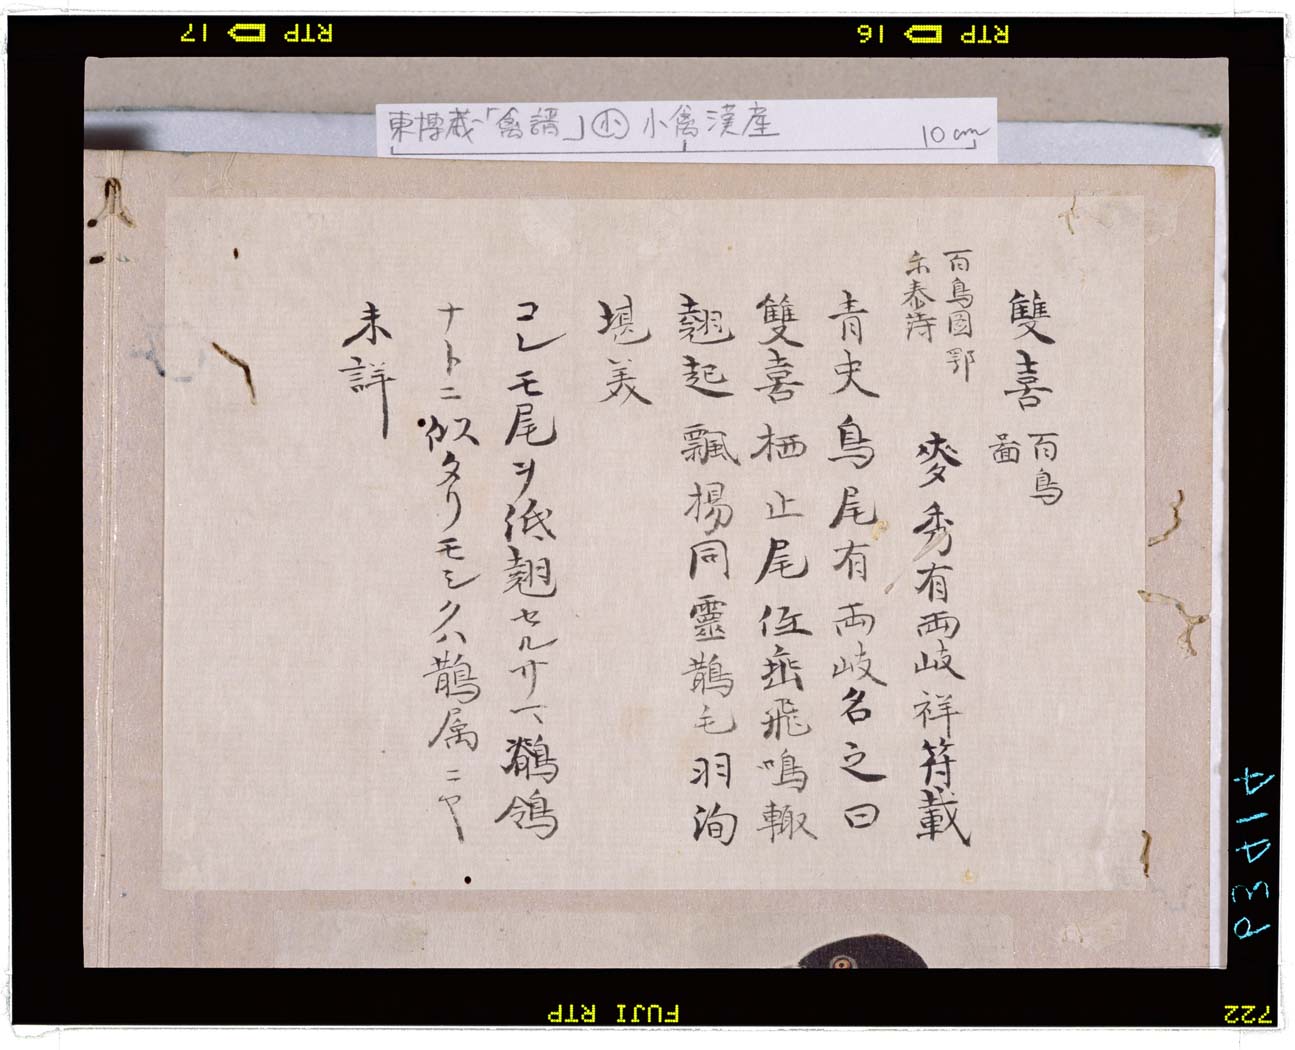 RTP 16
RTP 17
東博蔵「禽譜」小 小禽漢産
10cm
雙喜 百鳥
圖
百鳥図 鄂
尓泰詩
麥秀有両岐祥符載
青史鳥尾有両岐名之曰
雙喜栖止尾低垂飛鳴輙
翹起飄楊同靈鵲毛羽洵
堪美
コレモ尾ヲ低翹セルサマ鶺鴒
ナトニ似タリモシクハ鵲属ニヤ
未詳
P3414
FUJI RTP
722